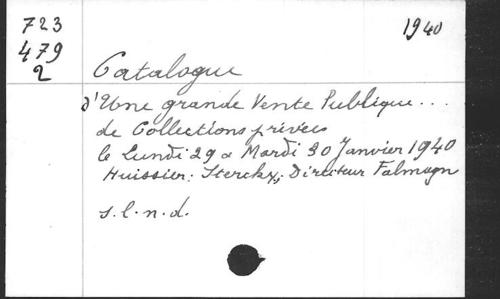 723
479
2
1940
Catalogue
d'Une grande Vente Publique...
de Collections privées
le Lundi 29 & Mardi 30 Janvier 1940
Huissier: Sterckx; Directeur Falmagn
s.l.n.d.